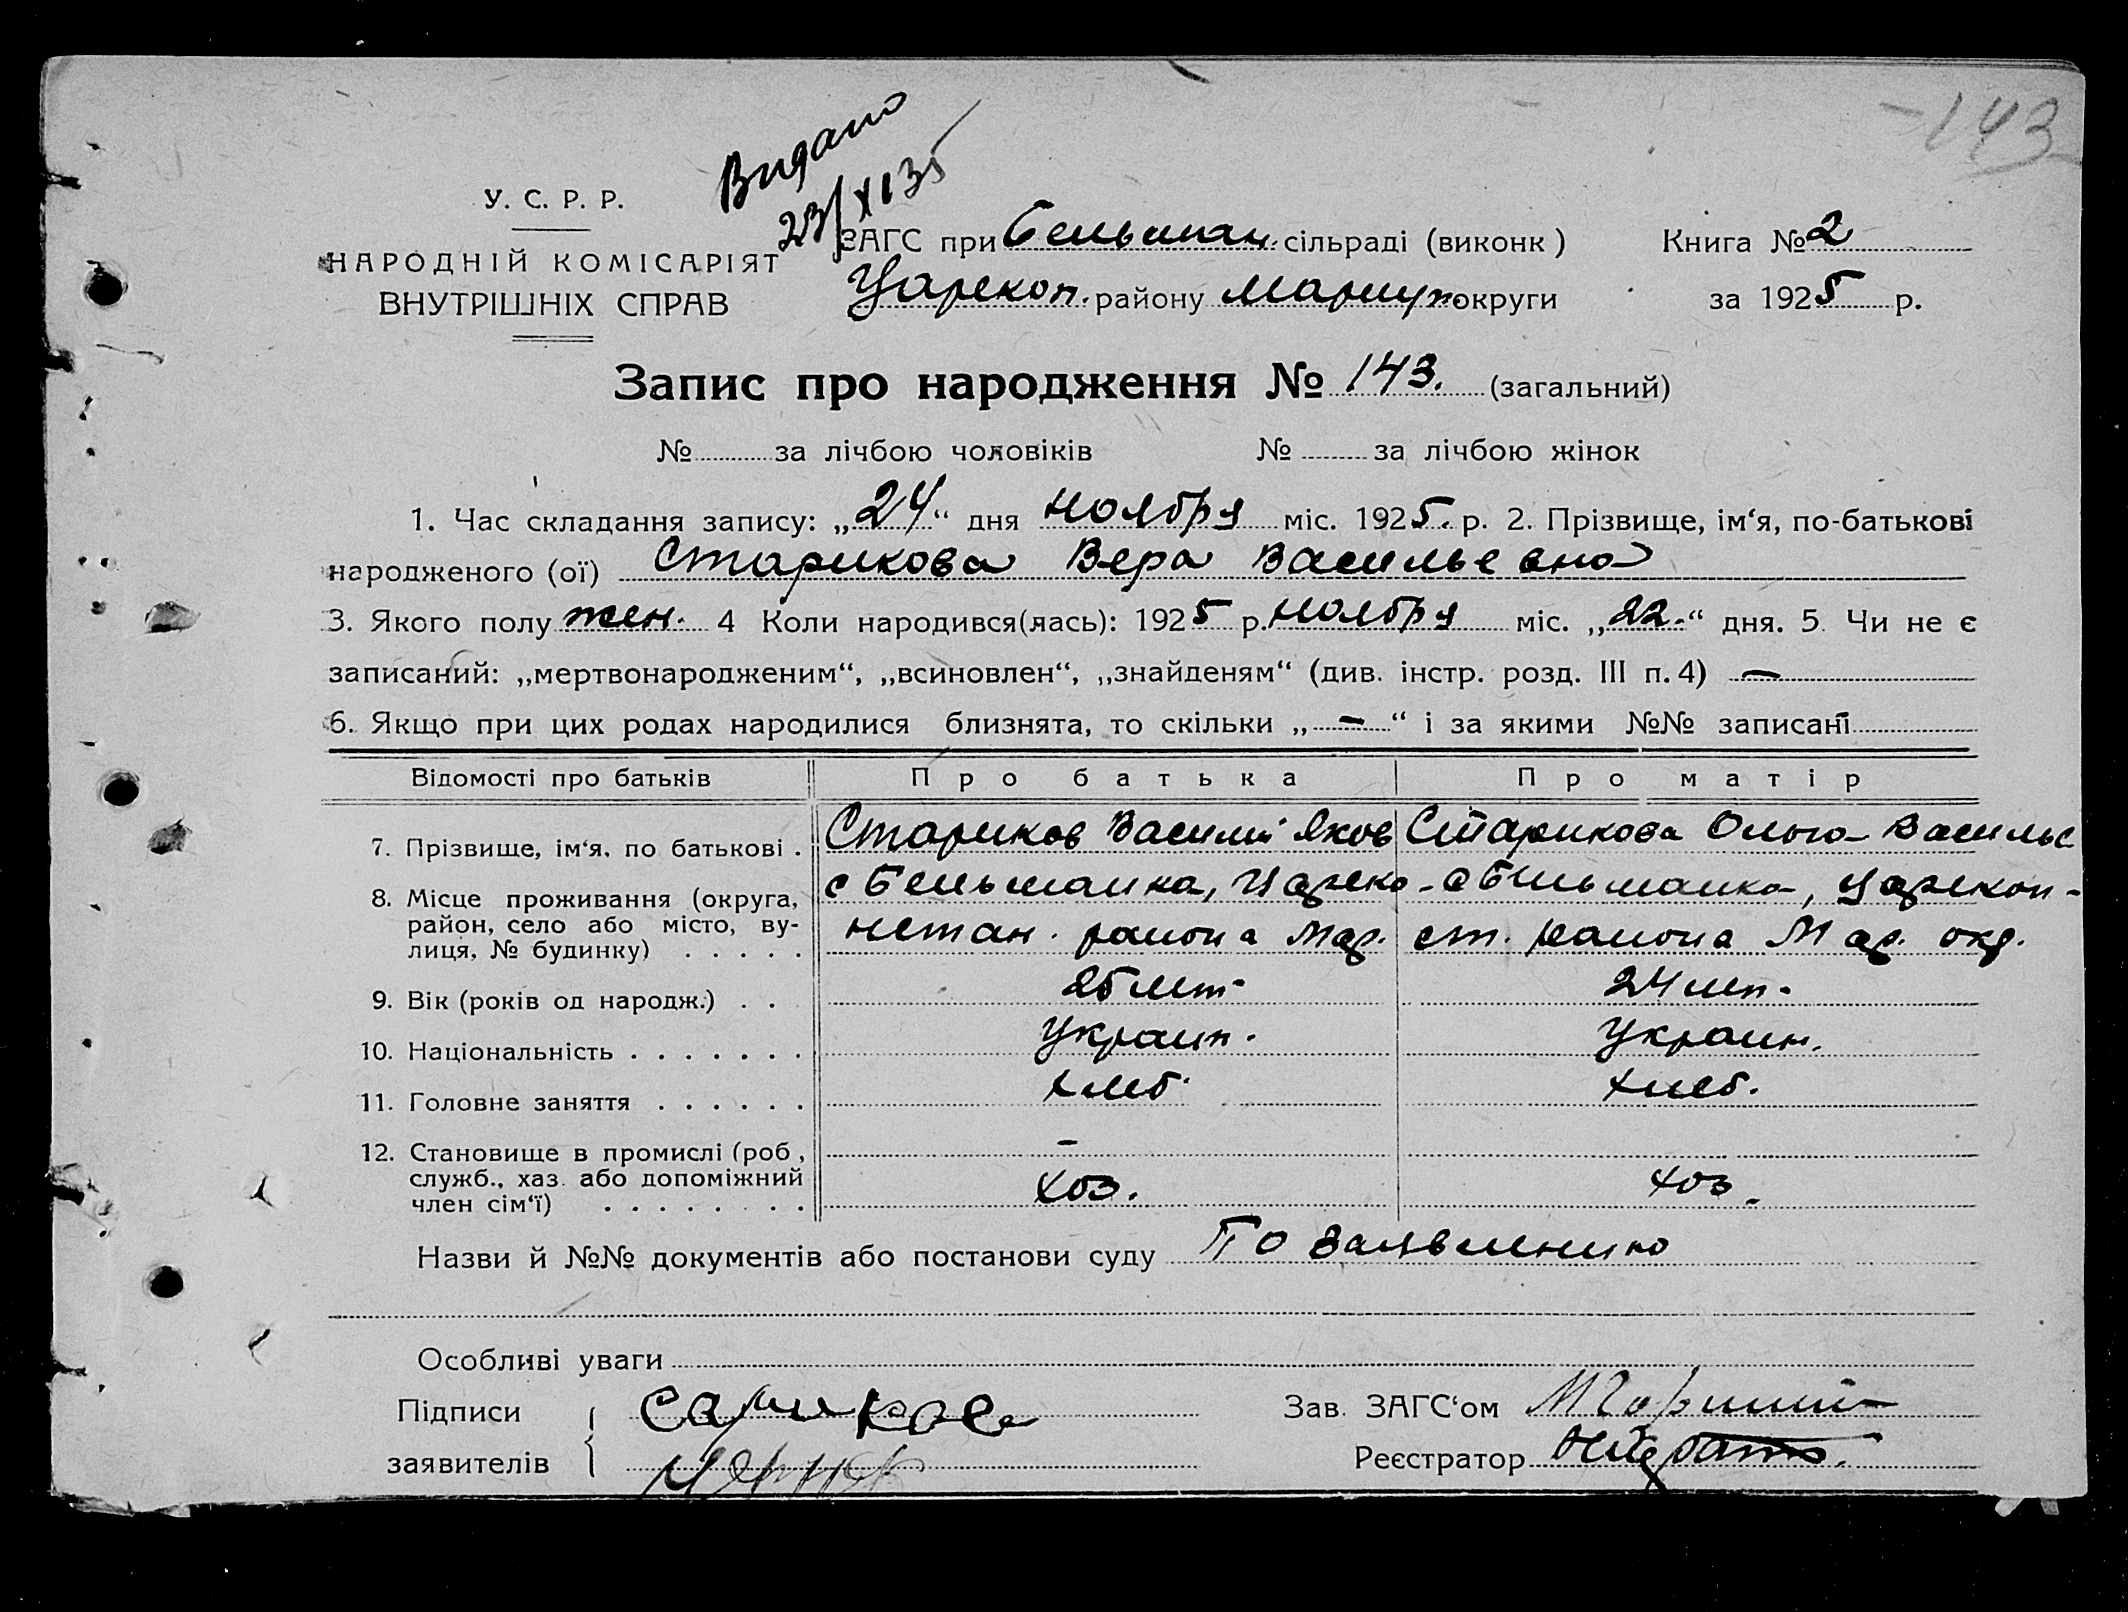 143
Видано
23/XI 35
У. С. Р. Р.
НАРОДНІЙ КОМІСАРІЯТ
ВНУТРІШНІХ СПРАВ
ЗАГС при Бельман. сільраді (виконк) Книга № 2
Царекон. району Мариуп. округи за 1925 р.
Запис про народження № 143. (загальний)
№ за лічбою чоловіків № за лічбою жінок
1. Час складання запису: „24“ дня Ноября міс. 1925. р. 2. Прізвище, ім‘я, по-батькові
народженого (ої) Старикова Вера Васильевна
3. Якого полу жен. 4 Коли народився(лась): 1925 р. Ноября міс. „22.“ дня. 5. Чи не є
записаний: „мертвонародженим“, „всиновлен“, „знайденям“ (див. інстр. розд. III п. 4) —
6. Якщо при цих родах народилися близнята, то скільки „—“ і за якими №№ записані
Відомості про батьків Про батька Про матір
7. Прізвище, ім‘я, по батькові . Стариков Василий Яков Старикова Ольга Василье
8. Місце проживання (округа, район, село або місто, вулиця, № будинку) . . . . .
с Бельманка, Цареко- с Бельманка, Царекон-
нстан. района Мар. ст. района Мар. окр.
9. Вік (років од народж.) . . 25 лет 24 лет.
10. Національність . . . . . . . Украин. Украин.
11. Головне заняття . . . . . . хлеб. хлеб.
12. Становище в промислі (роб., служб., хаз. або допоміжний член сім‘ї) . . . . . . . . – хоз. хоз.
Назви й №№ документів або постанови суду По заявлению
Особливі уваги
Підписи
заявителів
Зав. ЗАГС‘ом
Реєстратор